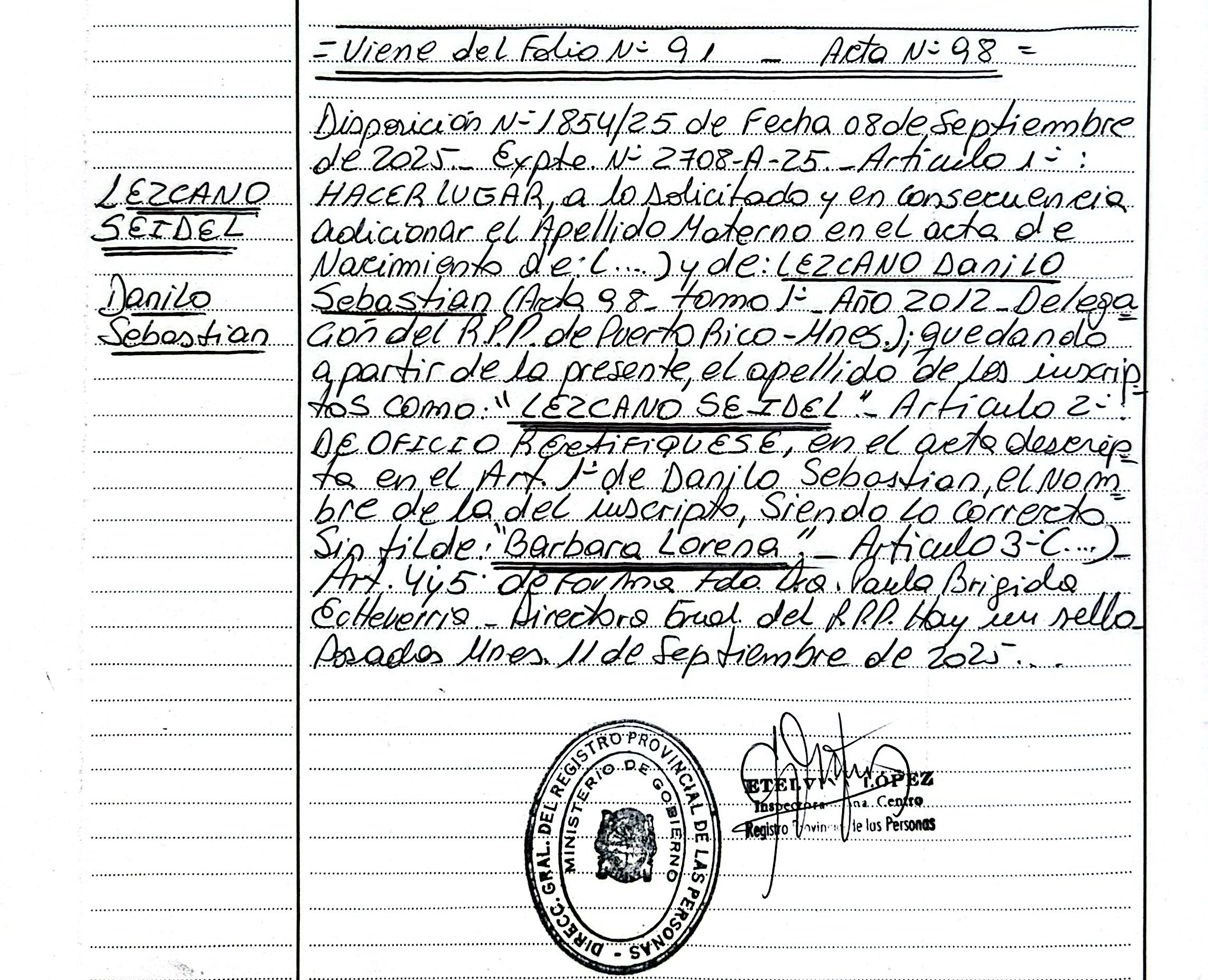 = Viene del Folio Nº 91 _ Acta Nº 98 =
Disposición Nº 1854/25 de Fecha 08 de Septiembre
de 2025_ Expte. Nº 2708-A-25._ Artículo 1º :
LEZCANO
SEIDEL
Danilo
Sebastian
HACER LUGAR, a lo solicitado y en consecuencia
adicionar el Apellido Materno en el acta de
Nacimiento de: (...) y de: LEZCANO Danilo
Sebastian (Acta 98_ tomo 1º Año 2012_ Delega
ción del R.P.P. de Puerto Rico - Mnes.); quedando
a partir de la presente, el apellido de los inscrip
tos como: "LEZCANO SEIDEL"_ Artículo 2º
DE OFICIO RECTIFIQUESE, en el acta descrip
ta en el Art. 1º de Danilo Sebastian, el Nom
bre de la del inscripto, Siendo lo correcto
Sin tilde: "Barbara Lorena"_ Artículo 3º (...)_
Art. 4y5º de Forma Fdo. Dra. Paula Brigida
Echeverria_ Directora Gral del R.P.P. Hay un sello_
Posadas Mnes. 11 de Septiembre de 2025...
DIRECC. GRAL. DEL REGISTRO PROVINCIAL DE LAS PERSONAS -
MINISTERIO DE GOBIERNO
LÓPEZ
Inspectora Centro
Registro de las Personas